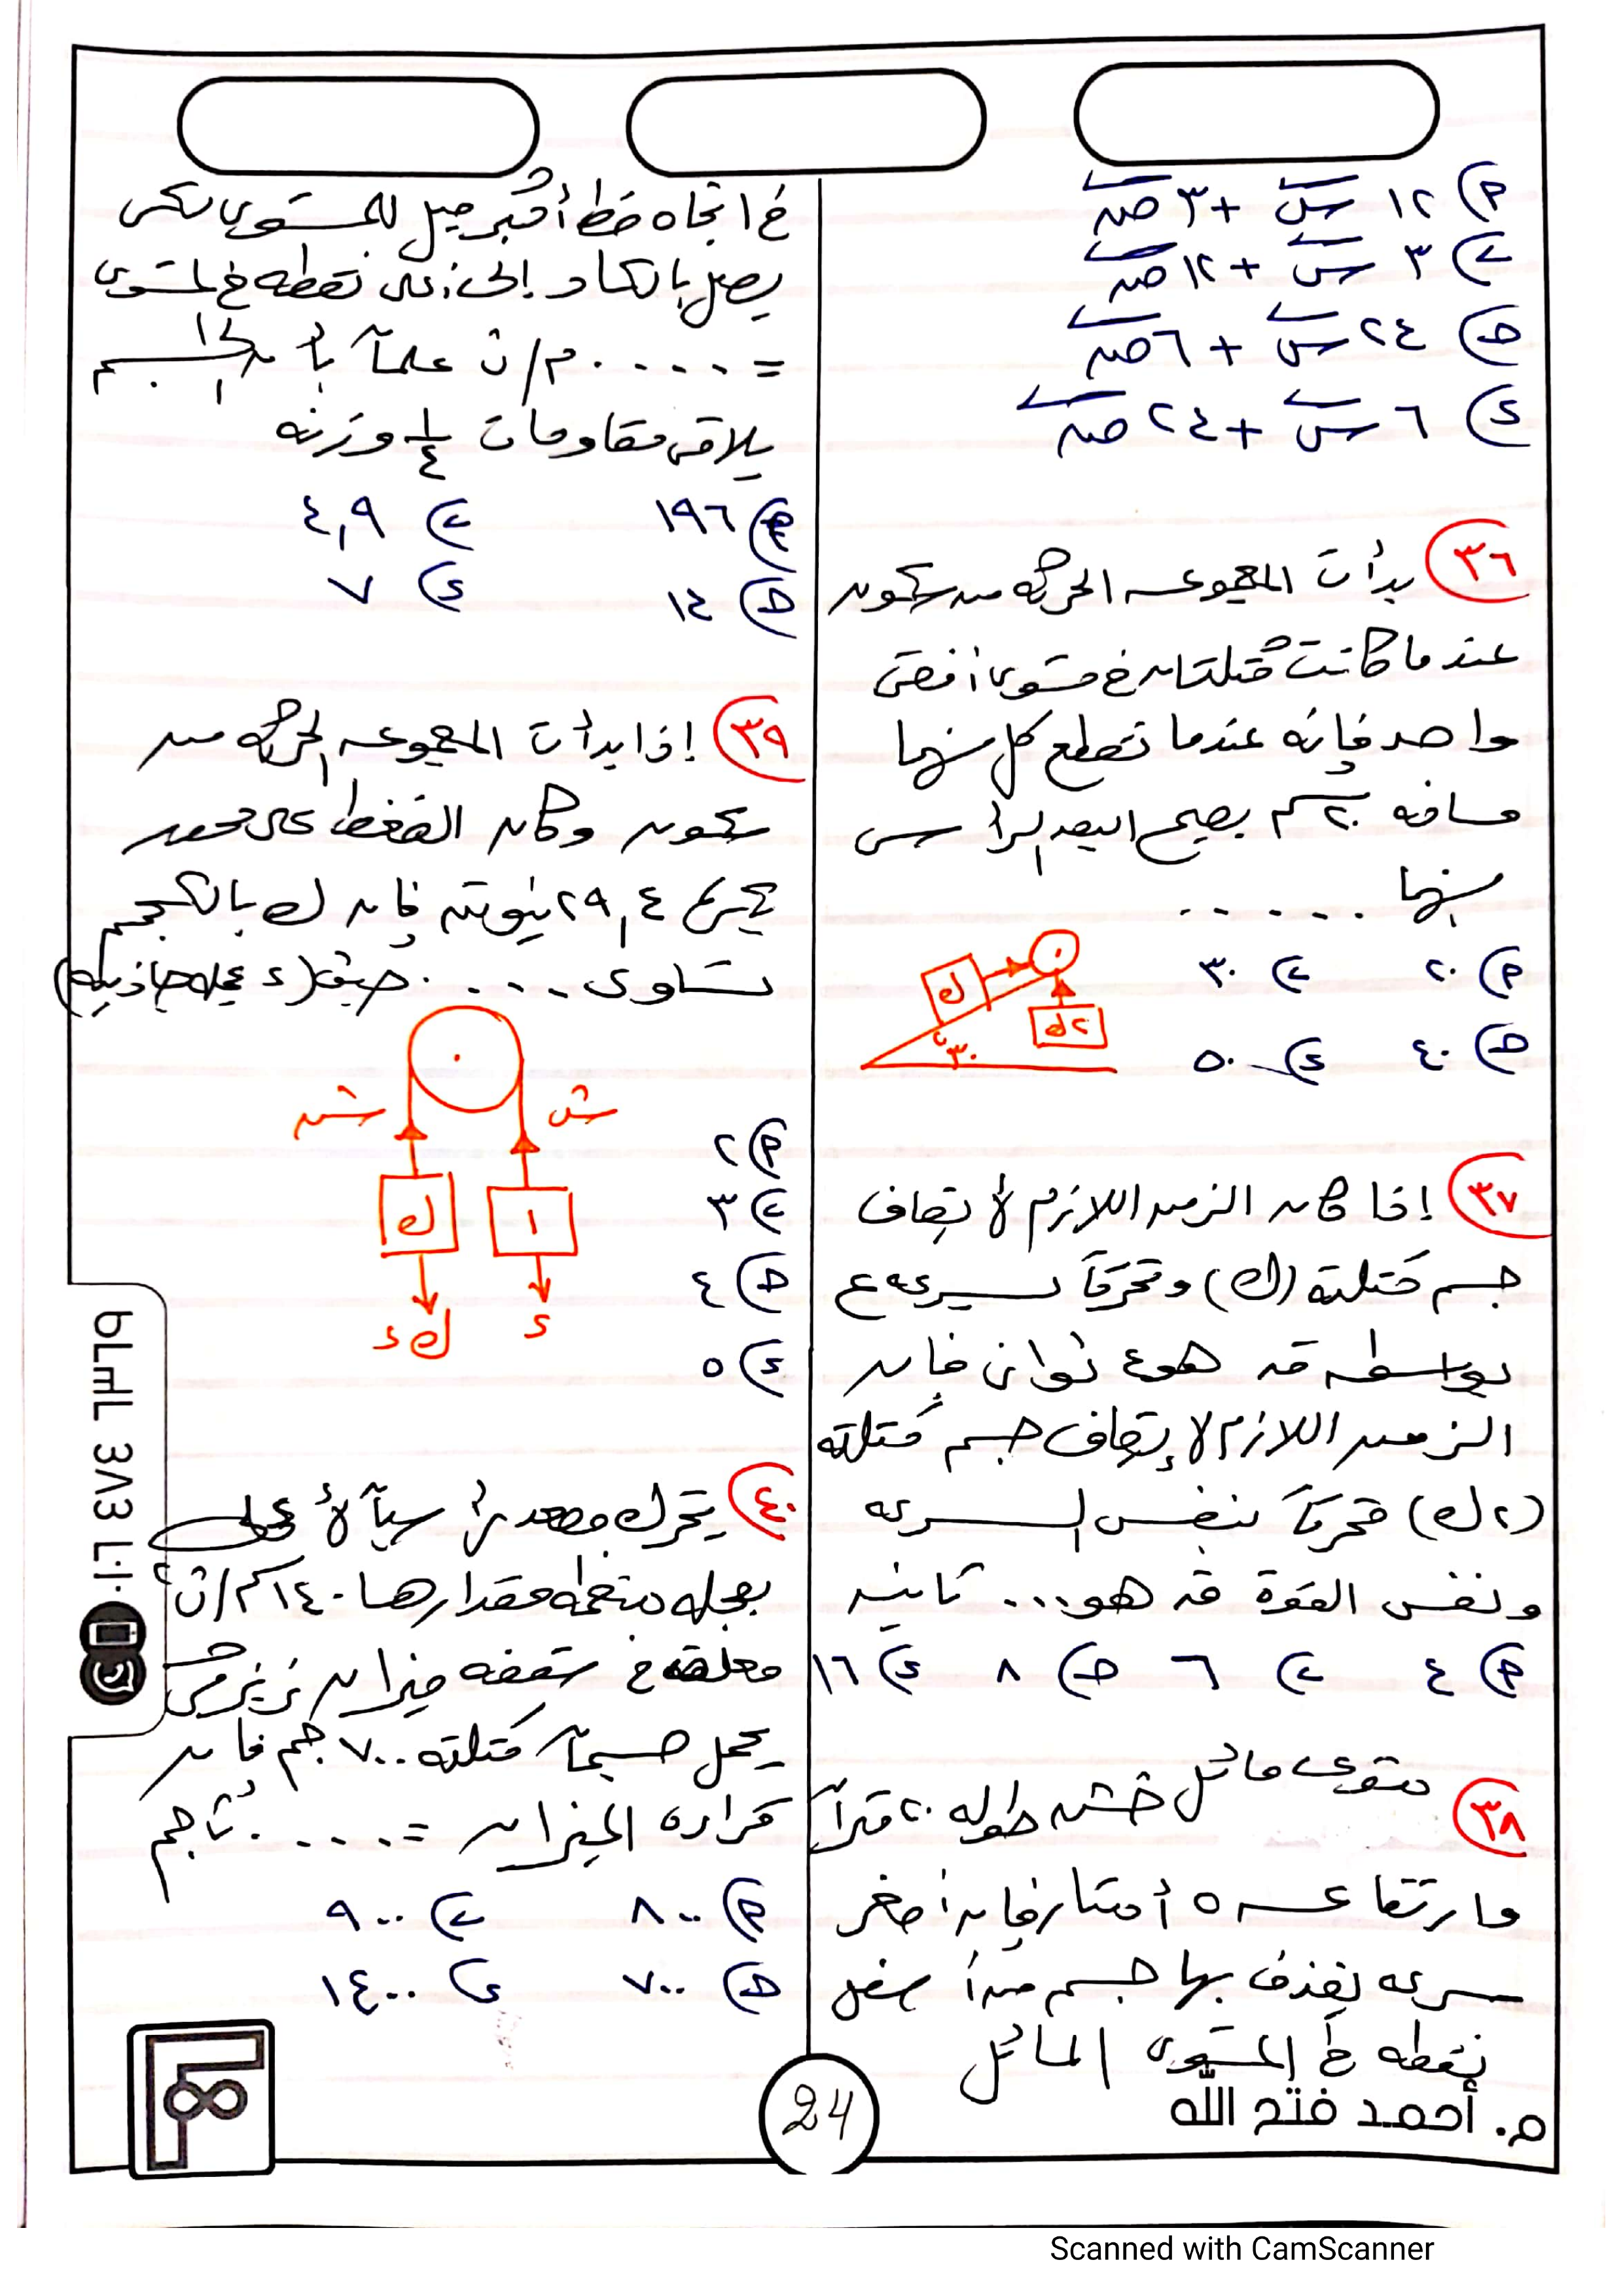 أ) ١٢ س + ٣ ص
ب) ٣ س + ١٢ ص
ج) ٢٤ س + ٦ ص
د) ٦ س + ٢٤ ص
٣٦ بدأت المجموعه الحركه من سكون
عندما كانت كتلتان في مستوى أفقى
واحد فإنه عندما تقطع كل منهما
مسافه ٢٠ سم يصبح البعد الرأسى
بينهما .....
أ) ٢٠ ب) ٣٠
ج) ٤٠ د) ٥٠
ك
٢ك
٣٠°
٣٧ إذا كان الزمن اللازم لإيقاف
جسم كتلته (ك) متحركاً بسرعه ع
بواسطه ق هو ٤ ثوان فإن
الزمن اللازم لإيقاف جسم كتلته
(٢ك) متحركاً بنفس السرعه
ونفس القوة ق هو... ثانيه
أ) ٤ ب) ٦ ج) ٨ د) ١٦
٣٨ مستوى مائل خشن طوله ٢٠ متراً
وارتفاعه ٥ أمتار فإن أصغر
سرعه يقذف بها جسم من أسفل
نقطه في المستوى المائل
في اتجاه خط أكبر ميل للمستوى لكى
يصل بالكاد إلى أعلى نقطه في المستوى
= ..... م/ث علماً بأن الجسم
يلاقى مقاومات ١/٤ وزنه
أ) ١٩٦ ب) ٤,٩
ج) ١٤ د) ٧
٣٩ إذا بدأت المجموعه الحركه من
سكون وكان الضغط على محور
البكره ٢٩,٤ نيوتن فإن ك بالكجم
تساوى .... حيث (د عجله جاذبيه)
ش ش
ك ١
ك د د
أ) ٢
ب) ٣
ج) ٤
د) ٥
٤٠ يتحرك مصعد رأسياً لأعلى
بعجله منتظمه مقدارها ١٤٠ سم/ث٢
معلق في سقفه ميزان زنبركى
يحمل جسماً كتلته ٧٠٠ جم فإن
قراءه الميزان = ..... ث جم
أ) ٨٠٠ ب) ٩٠٠
ج) ٧٠٠ د) ١٤٠٠
م. أحمد فتح الله
24
Scanned with CamScanner